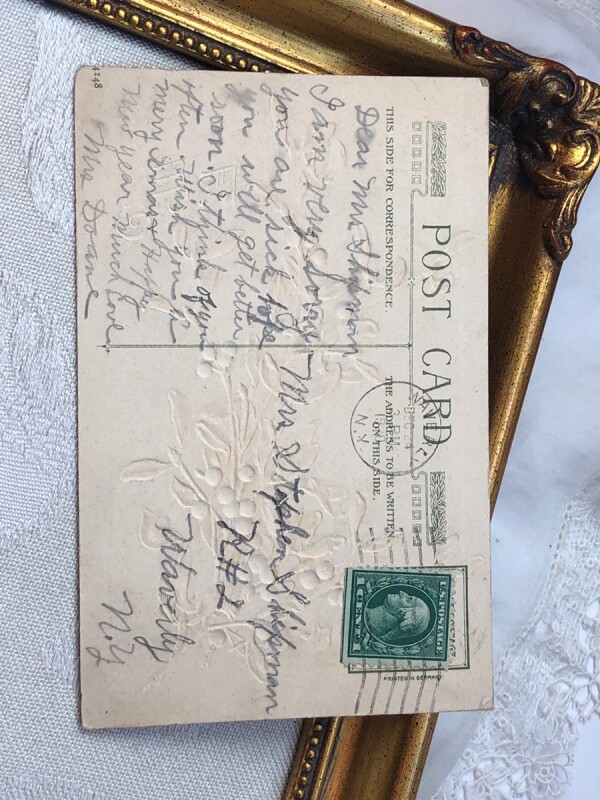 POST CARD
THIS SIDE FOR CORRESPONDENCE
THE ADDRESS TO BE WRITTEN
ON THIS SIDE.
Dear Mrs Shipman
I am very Sorry
you are sick hope
you will get better
soon. I think of you
often Wish you
merry Xmas & Happy
New year much love
Mrs Doane
4148
Mrs. Stephen Shipman
R#2
Waverly
N.Y
DEC 4
3 PM
N.Y.
U.S. POSTAGE
1 CENT 1
PRINTED IN GERMANY